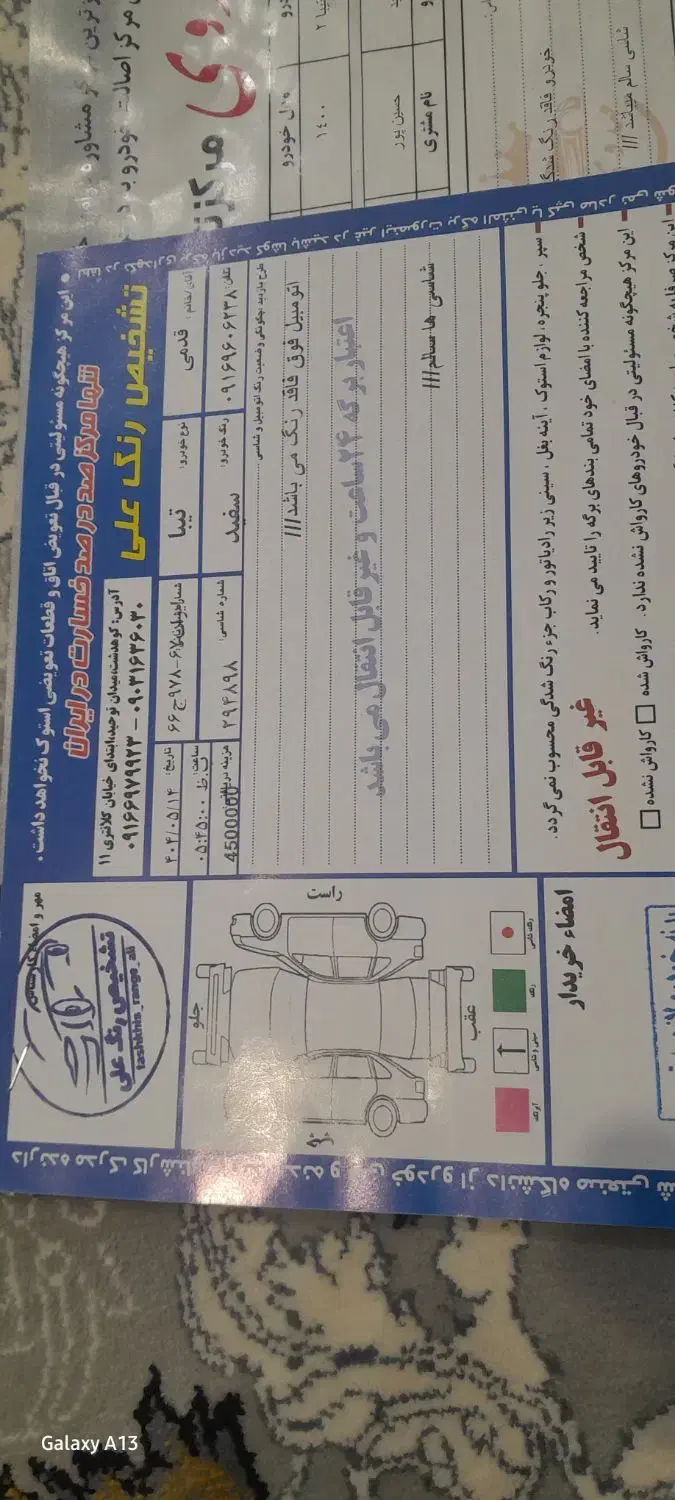 ● این مرکز هیچگونه مسئولیتی در قبال تعویض اتاق و قطعات تعویضی استوک نخواهد داشت.
تنها مرکز صد در صد خسارت در ایران
تشخیص رنگ علی
آدرس: کوهدشت، میدان توحید، ابتدای خیابان کلانتری ۱۱
۰۹۱۶۶۹۷۹۹۲۳ - ۰۹۰۳۱۶۳۶۰۳۰
آقای/خانم: قدمی
نوع خودرو: تیبا
۶۷-۹۷۸ج۶۶
تاریخ: ۴۰۴/۰۵/۱۴
تلفن: ۰۹۱۶۹۶۰۶۲۳۸
رنگ خودرو: سفید
شماره شاسی ۲۹۴۸۹۸
ساعت: ۰۵:۴۵:۰۰ ب.ظ
هزینه 4500000
اتومبیل فوق فاقد رنگ می باشد///
اعتبار برگه ۲۴ساعت و غیر قابل انتقال می باشد
شاسی ها سالم///
سپر جلو پنجره، لوازم استوک، آینه بغل، سینی زیر رادیاتور و رکاب جزء رنگ شدگی محسوب نمی گردد.
شخص مراجعه کننده با امضای خود تمامی بندهای برگه را تایید می نماید.
غیر قابل انتقال
این مرکز هیچگونه مسئولیتی در قبال خودروهای کارواش نشده ندارد. کارواش شده □ کارواش نشده □
مهر و امضاء کارشناس
تشخیص رنگ علی
tashkhis_range_ali
راست
جلو
عقب
چپ
رنگ
امضاء خریدار
مدل خودرو
۱۴۰۰
نام مشتری
حسین پور
خودرو فاقد رنگ شدگی
شاسی سالم میباشد ///
Galaxy A13